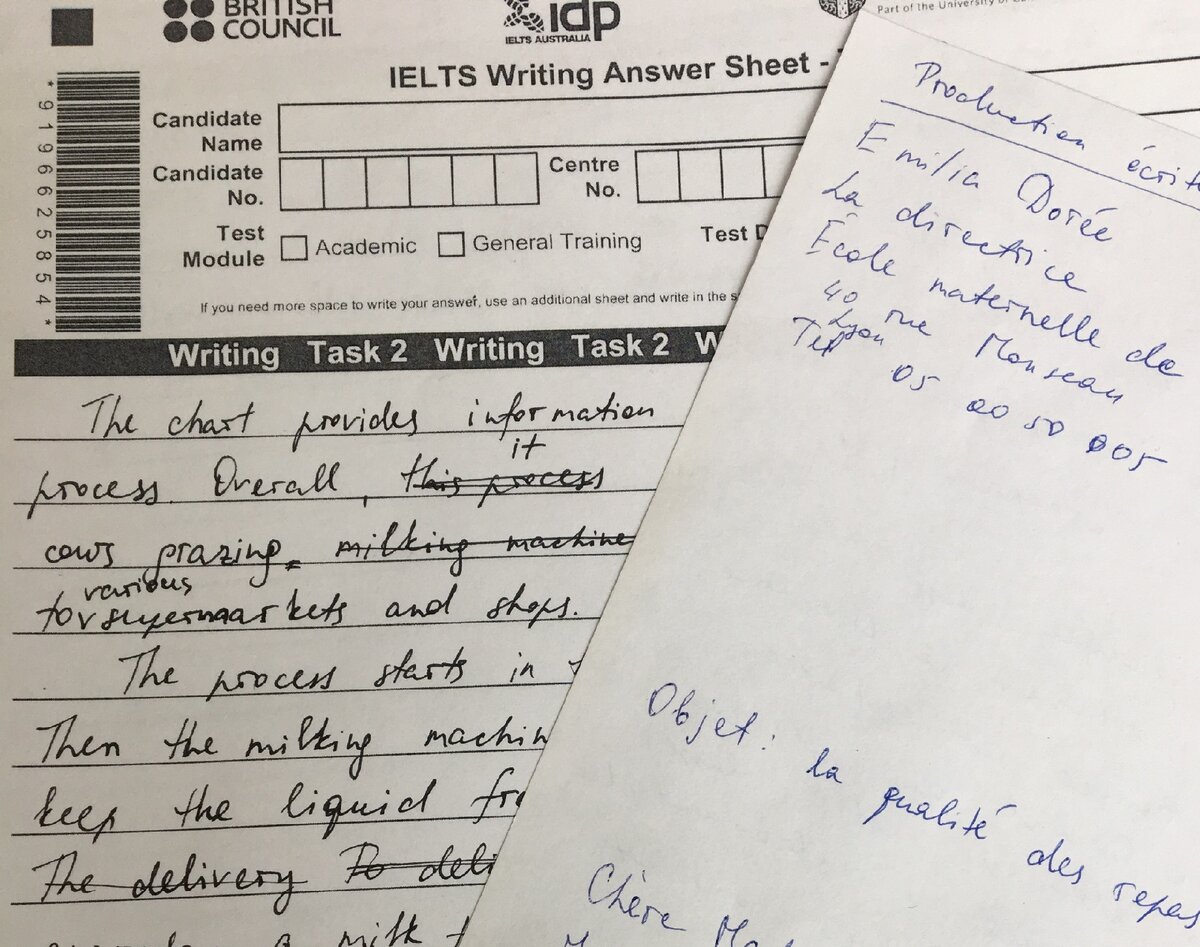 BRITISH
COUNCIL
idp
IELTS AUSTRALIA
Part of the University of
IELTS Writing Answer Sheet -
*919662 5854*
Candidate
Name
Candidate
No.
Centre
No.
Test
Module
Academic
General Training
Test D
If you need more space to write your answer, use an additional sheet and write in the s
Writing Task 2 Writing Task 2 W
The chart provides information
it
process. Overall, this process
cows prazing. milking machine
various
for supermaarkets and shops.
The process starts in
Then the milking machin
keep the liquid fro
The delivery To deli
a milk
Production écrite
Emilia Dorée
La directrice
École maternelle de
40 rue Monseau
Lyon
Tel 05 00 50 005
Objet: la qualité des repas
Chère Mad